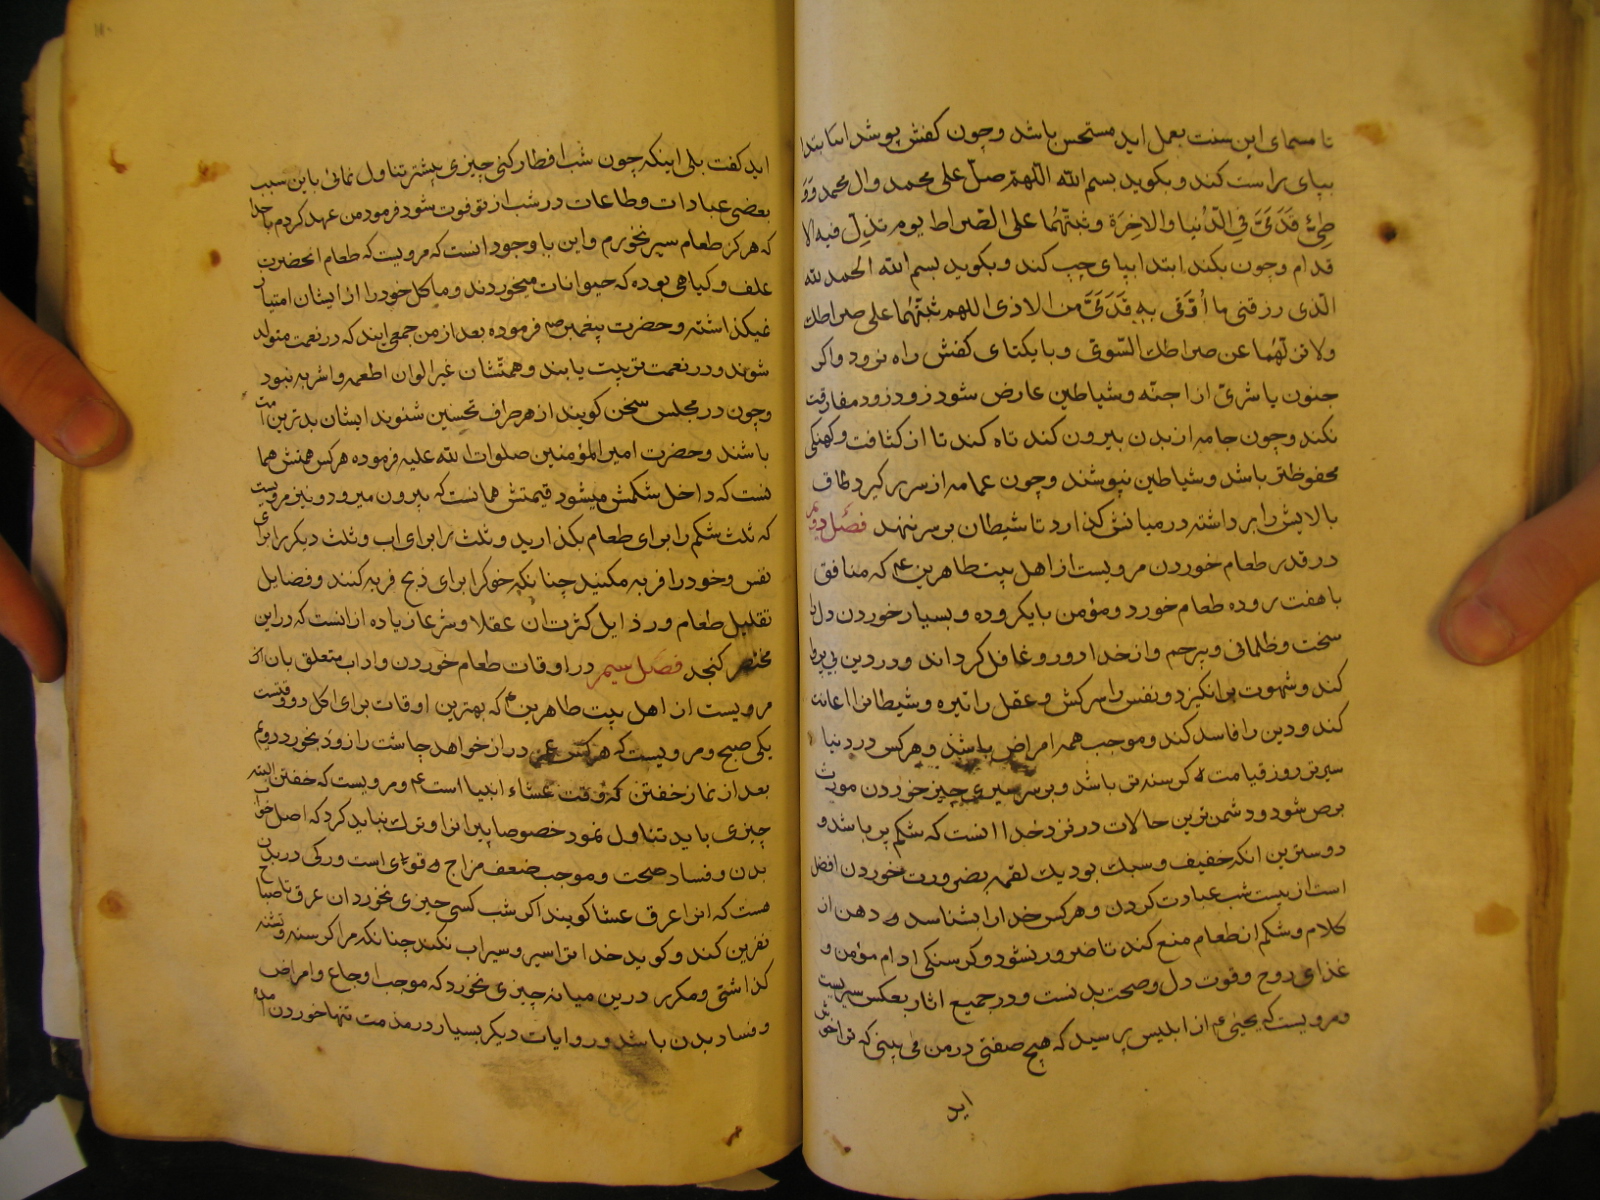 تا مسمای این سنت بعمل اید مستحسن باشد وچون کفش پوشد ابتدا
بپای راست کند و بکوید بسم الله اللهم صل علی محمد وال محمد و
قدمی فی الدنیا والاخرة وثبتهما علی الصراط یوم تذل فیه الا
قدام وچون بکند ابتدا بپای چپ کند و بکوید بسم الله الحمد لله
الذی رزقنی ما اوقی به قدمی من الاذی اللهم ثبتهما علی صراطک
ولا تزلهما عن صراطک السوی وبا یکتای کفش راه نرود واکر
جنون یا شری از اجنه وشیاطین عارض شود زود زود مفارقت
نکند وچون جامه از بدن بیرون کند تاه کند تا از کثافت وکهنکی
محفوظتر باشد وشیاطین نپوشند وچون عمامه از سر بر کیرد طاق
بالایش را بر داشته در میانش کذارد تا شیطان بر سر ننهد فصل دویم
در قدر طعام خوردن مرویست از اهل بیت طاهرین ع که منافق
با هفت روده طعام خورد ومؤمن با یکروده وبسیار خوردن دل را
سخت وظلمانی وبیرحم واز خدا دور وغافل کرداند ودر دین بی پروا
کند وشهوت بر انکیزد ونفس را سرکش وعقل را تیره وشیطانرا اعانت
کند ودین را فاسد کند وموجب همه امراض باشد وهر کس در دنیا
سیرتر روز قیامت کرسنه تر باشد وبر سر سیری چیز خوردن مورث
برص شود ودشمن ترین حالات در نزد خدا انست که شکم پر باشد و
دوسترین انکه خفیف وسبک بود یک لقمه بضرورت نخوردن افضل
است از بیست شب عبادت کردن وهر کس خدا را بشناسد و دهن از
کلام وشکم از طعام منع کند تا ضرور نشود وکرسنکی ادام مؤمن و
غذای روح وقوت دل وصحت بدنست ودر جمیع اثار بعکس سیریست
ومرویست که یحیی ع از ابلیس پرسید که هیچ صفتی در من می بینی که ترا خوش
اید
اید کفت بلی اینکه چون شب افطار کنی چیزی بیشتر تناول نمائی باین سبب
بعضی عبادات وطاعات در شب از تو فوت شود فرمود من عهد کردم با خدا
که هرکز طعام سیر نخورم واین با وجود انست که مرویست که طعام انحضرت
علف وکیاهی بوده که حیوانات میخوردند وماکل خود را از ایشان امتیاز
نمیکذاشته وحضرت پیغمبر ص فرموده بعد از من جمعی ایند که در نعمت متولد
شوند ودر نعمت تربیت یابند وهمتشان غیر الوان اطعمه واشربه نبود
وچون در مجلس سخن کویند از هر طرف تحسین شنوند ایشان بدترین امت
باشند وحضرت امیر المؤمنین صلوات الله علیه فرموده هر کس همتش هما
نست که داخل شکمش میشود قیمتش همانست که بیرون میرود ونیز مرویست
که ثلث شکم را برای طعام بکذارید وثلث برای اب وثلث دیکر برای
نفس وخود را فربه مکنید چنانکه خوکرا برای ذبح فربه کنند وفضایل
تقلیل طعام ورذایل کثرت ان عقلا وشرعا زیاده از انست که در این
مختصر کنجد فصل سیم در اوقات طعام خوردن واداب متعلق بان
مرویست از اهل بیت طاهرین ع که بهترین اوقات برای اکل دو وقتست
یکی صبح ومرویست که هر کس عمر دراز خواهد چاشت را زود بخورد دویم
بعد از نماز خفتن که وقت عشاء انبیا است ع ومرویست که خفتن البته
چیزی باید تناول نمود خصوصا پیرانرا وترک نباید کرد که اصل خرابی
بدن وفساد صحت وموجب ضعف مزاج وقوای است ورکی در بدن
هست که انرا عرق عشا کویند اکر شب کسی چیزی نخورد ان عرق تا صباح
نفرین کند وکوید خدا ترا سیر وسیراب نکند چنانکه مرا کرسنه وتشنه
کذاشتی ومکرر در بین میانه چیزی نخورد که موجب اوجاع وامراض
وفساد بدن باشد وروایات دیکر بسیار در مذمت تنها خوردن امده